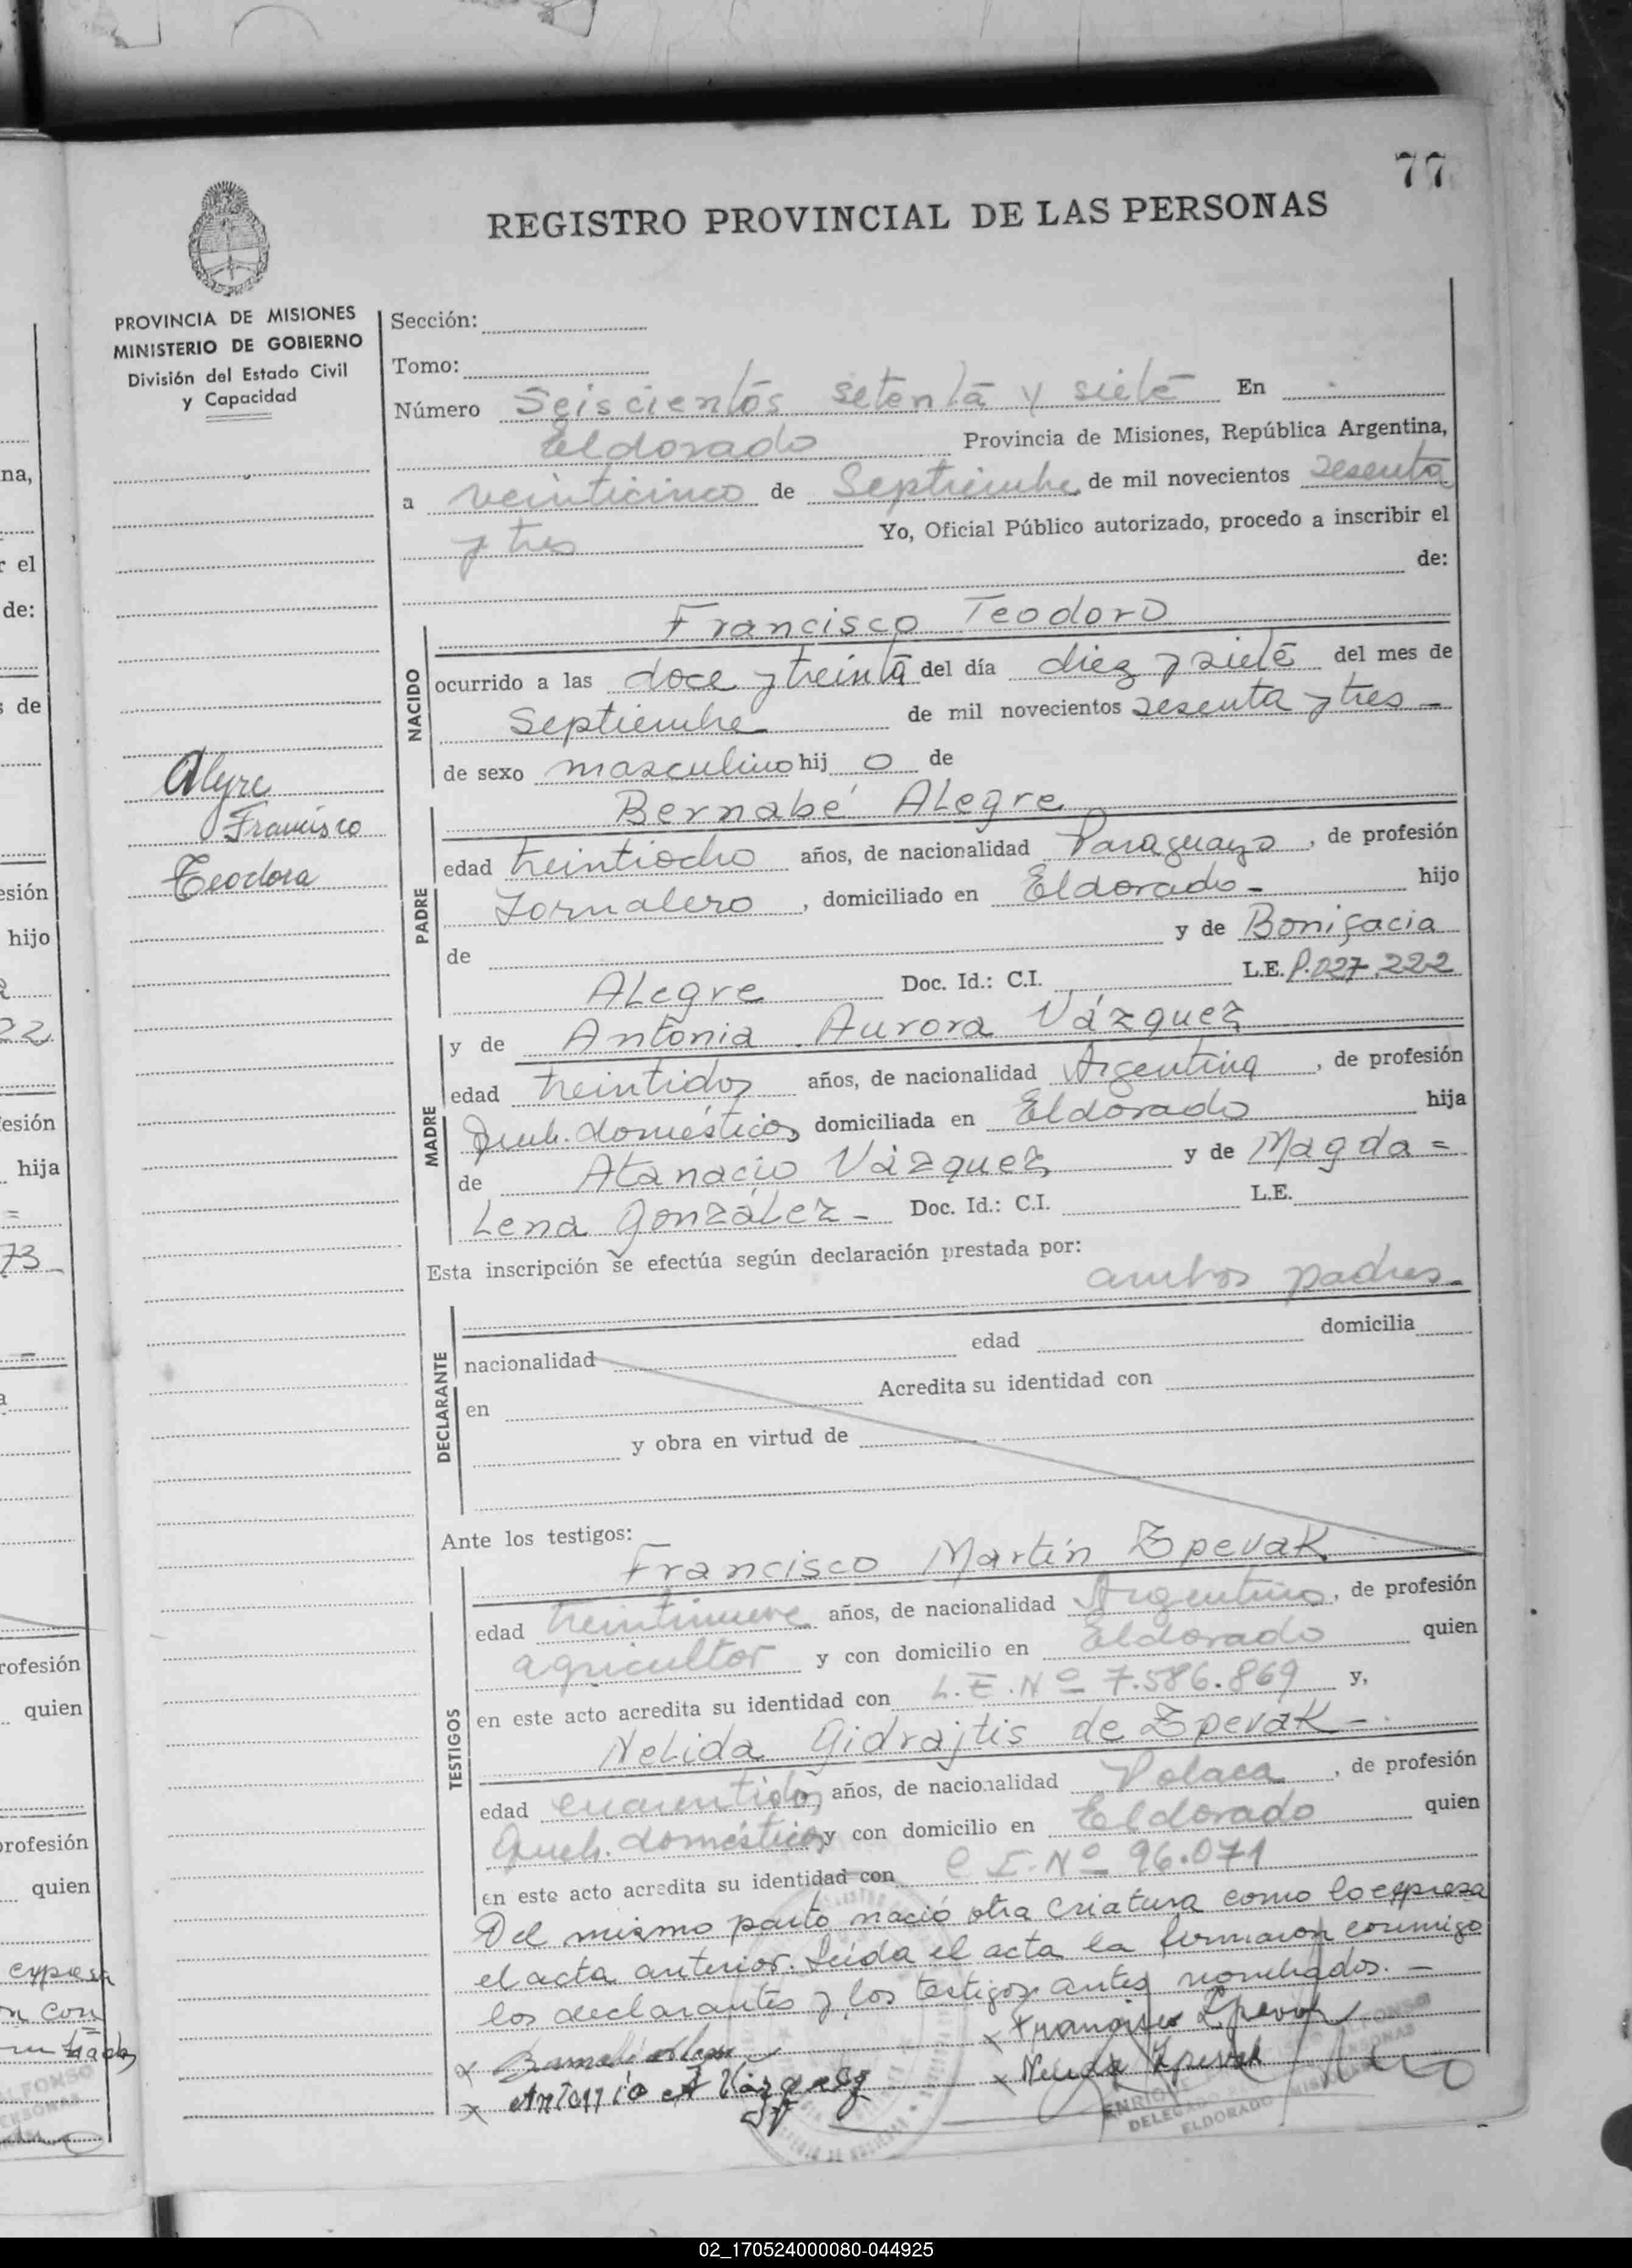 77
REGISTRO PROVINCIAL DE LAS PERSONAS
PROVINCIA DE MISIONES
MINISTERIO DE GOBIERNO
División del Estado Civil
y Capacidad
Alegre
Francisco
Teodoro
Sección:
Tomo:
Número Seiscientos setenta y siete En
Eldorado Provincia de Misiones, República Argentina,
a veinticinco de Septiembre de mil novecientos sesenta
y tres Yo, Oficial Público autorizado, procedo a inscribir el
de:
NACIDO
Francisco Teodoro
ocurrido a las doce y treinta del día diez y siete del mes de
Septiembre de mil novecientos sesenta y tres -
de sexo masculino hij o de
PADRE
Bernabé Alegre
edad treintiocho años, de nacionalidad Paraguayo, de profesión
Jornalero, domiciliado en Eldorado - hijo
de y de Bonifacia
Alegre Doc. Id.: C.I. L.E. P.027.222
MADRE
y de Antonia Aurora Vázquez
edad treintidos años, de nacionalidad Argentina, de profesión
Queh. domésticos domiciliada en Eldorado hija
de Atanacio Vázquez y de Magda =
Lena González - Doc. Id.: C.I. L.E.
Esta inscripción se efectúa según declaración prestada por:
ambos padres -
DECLARANTE
nacionalidad edad domicilia
en Acredita su identidad con
y obra en virtud de
Ante los testigos:
TESTIGOS
Francisco Martín Zpevak
edad treintinueve años, de nacionalidad Argentino, de profesión
agricultor y con domicilio en Eldorado quien
en este acto acredita su identidad con L.E. Nº 7.586.869 y,
Nelida Gidrajtis de Zpevak -
edad cuarentidos, años, de nacionalidad Polaca, de profesión
Queh. domésticos y con domicilio en Eldorado quien
en este acto acredita su identidad con C I. Nº 96.071
Del mismo parto nació otra criatura como lo expresa
el acta anterior. Leída el acta la firmaron conmigo
los declarantes y los testigos antes nombrados. -
x Francisco Zpevak
x Antonia A Vázquez
x Nelida Zpevak
ENRIQUE ALFONSO
ELDORADO MISIONES
02_170524000080-044925